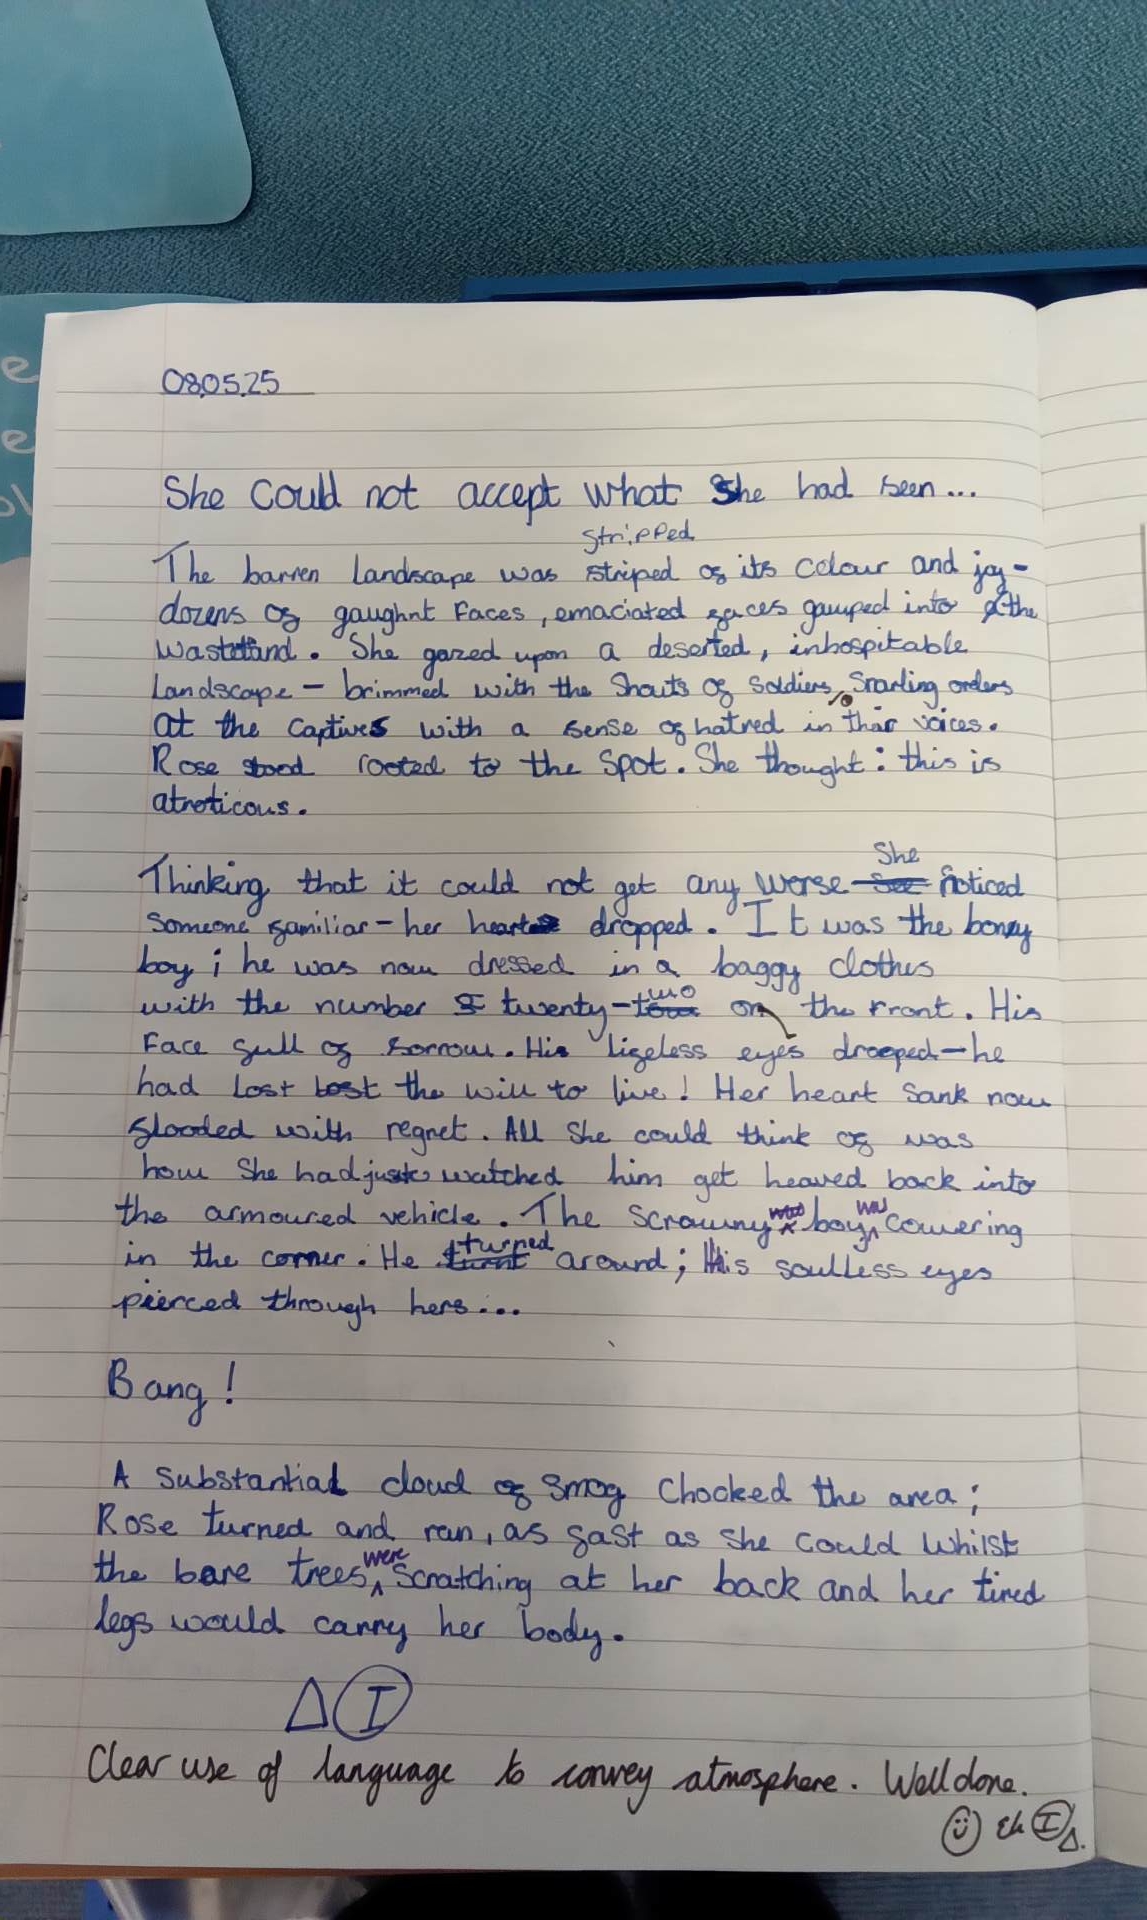 08.05.25
She Could not accept what She had seen...
stripped
The barren landscape was striped of its colour and joy-
dozens of gaughnt faces, emaciated faces gawped into the
wasteland. She gazed upon a deserted, inhospitable
landscape - brimmed with the Shouts of Soldiers, Snarling orders
at the captives with a sense of hatred in thier voices.
Rose stood rooted to the Spot. She thought: this is
atroticous.
She
Thinking that it could not get any worse noticed
Someone familiar - her heart dropped. It was the bony
boy; he was now dressed in a baggy clothes
two
with the number twenty- on the front. His
Face full of sorrow. His lifeless eyes drooped - he
had Lost the will to live! Her heart Sank now
flooded with regret. All She could think of was
how She had just watched him get heaved back into
the armoured vehicle. The Scrawny boy was cowering
turned
in the corner. He around; His soulless eyes
pierced through hers...
Bang!
A Substantial cloud of Smog Chocked the area;
Rose turned and ran, as fast as She Could Whilst
were
the bare trees, Scratching at her back and her tired
legs would carry her body.
Δ I
Clear use of language to convey atmosphere. Well done.
I Δ